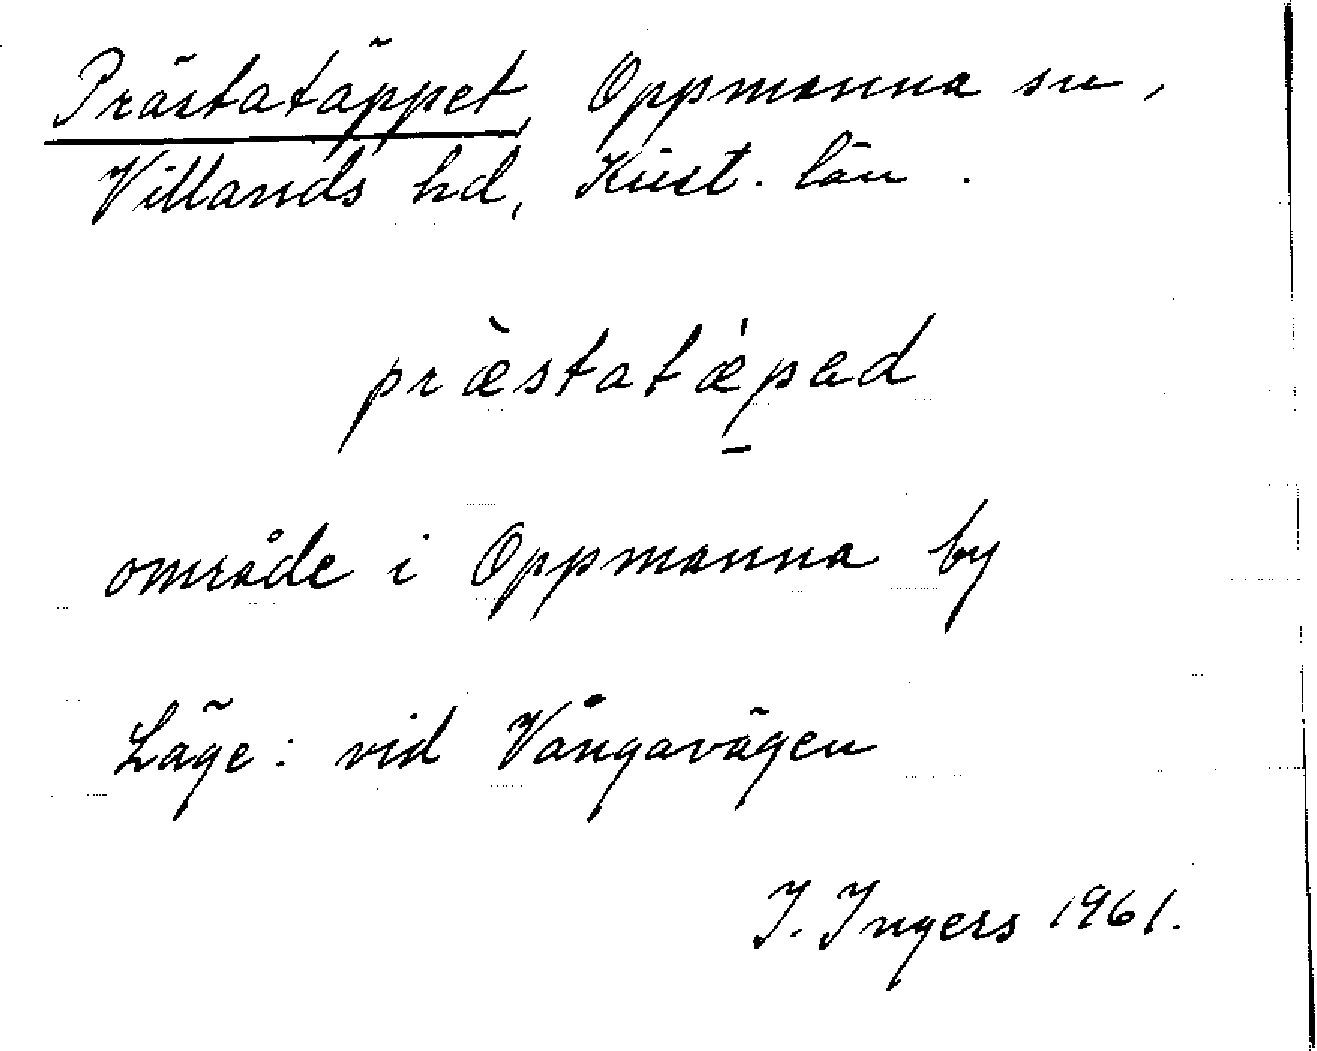 Prästatäppet, Oppmanna sn,
Villands hd, Krist. län.
præ̀statǽpad
område i Oppmanna by
Läge: vid Vångavägen
I. Ingers 1961.